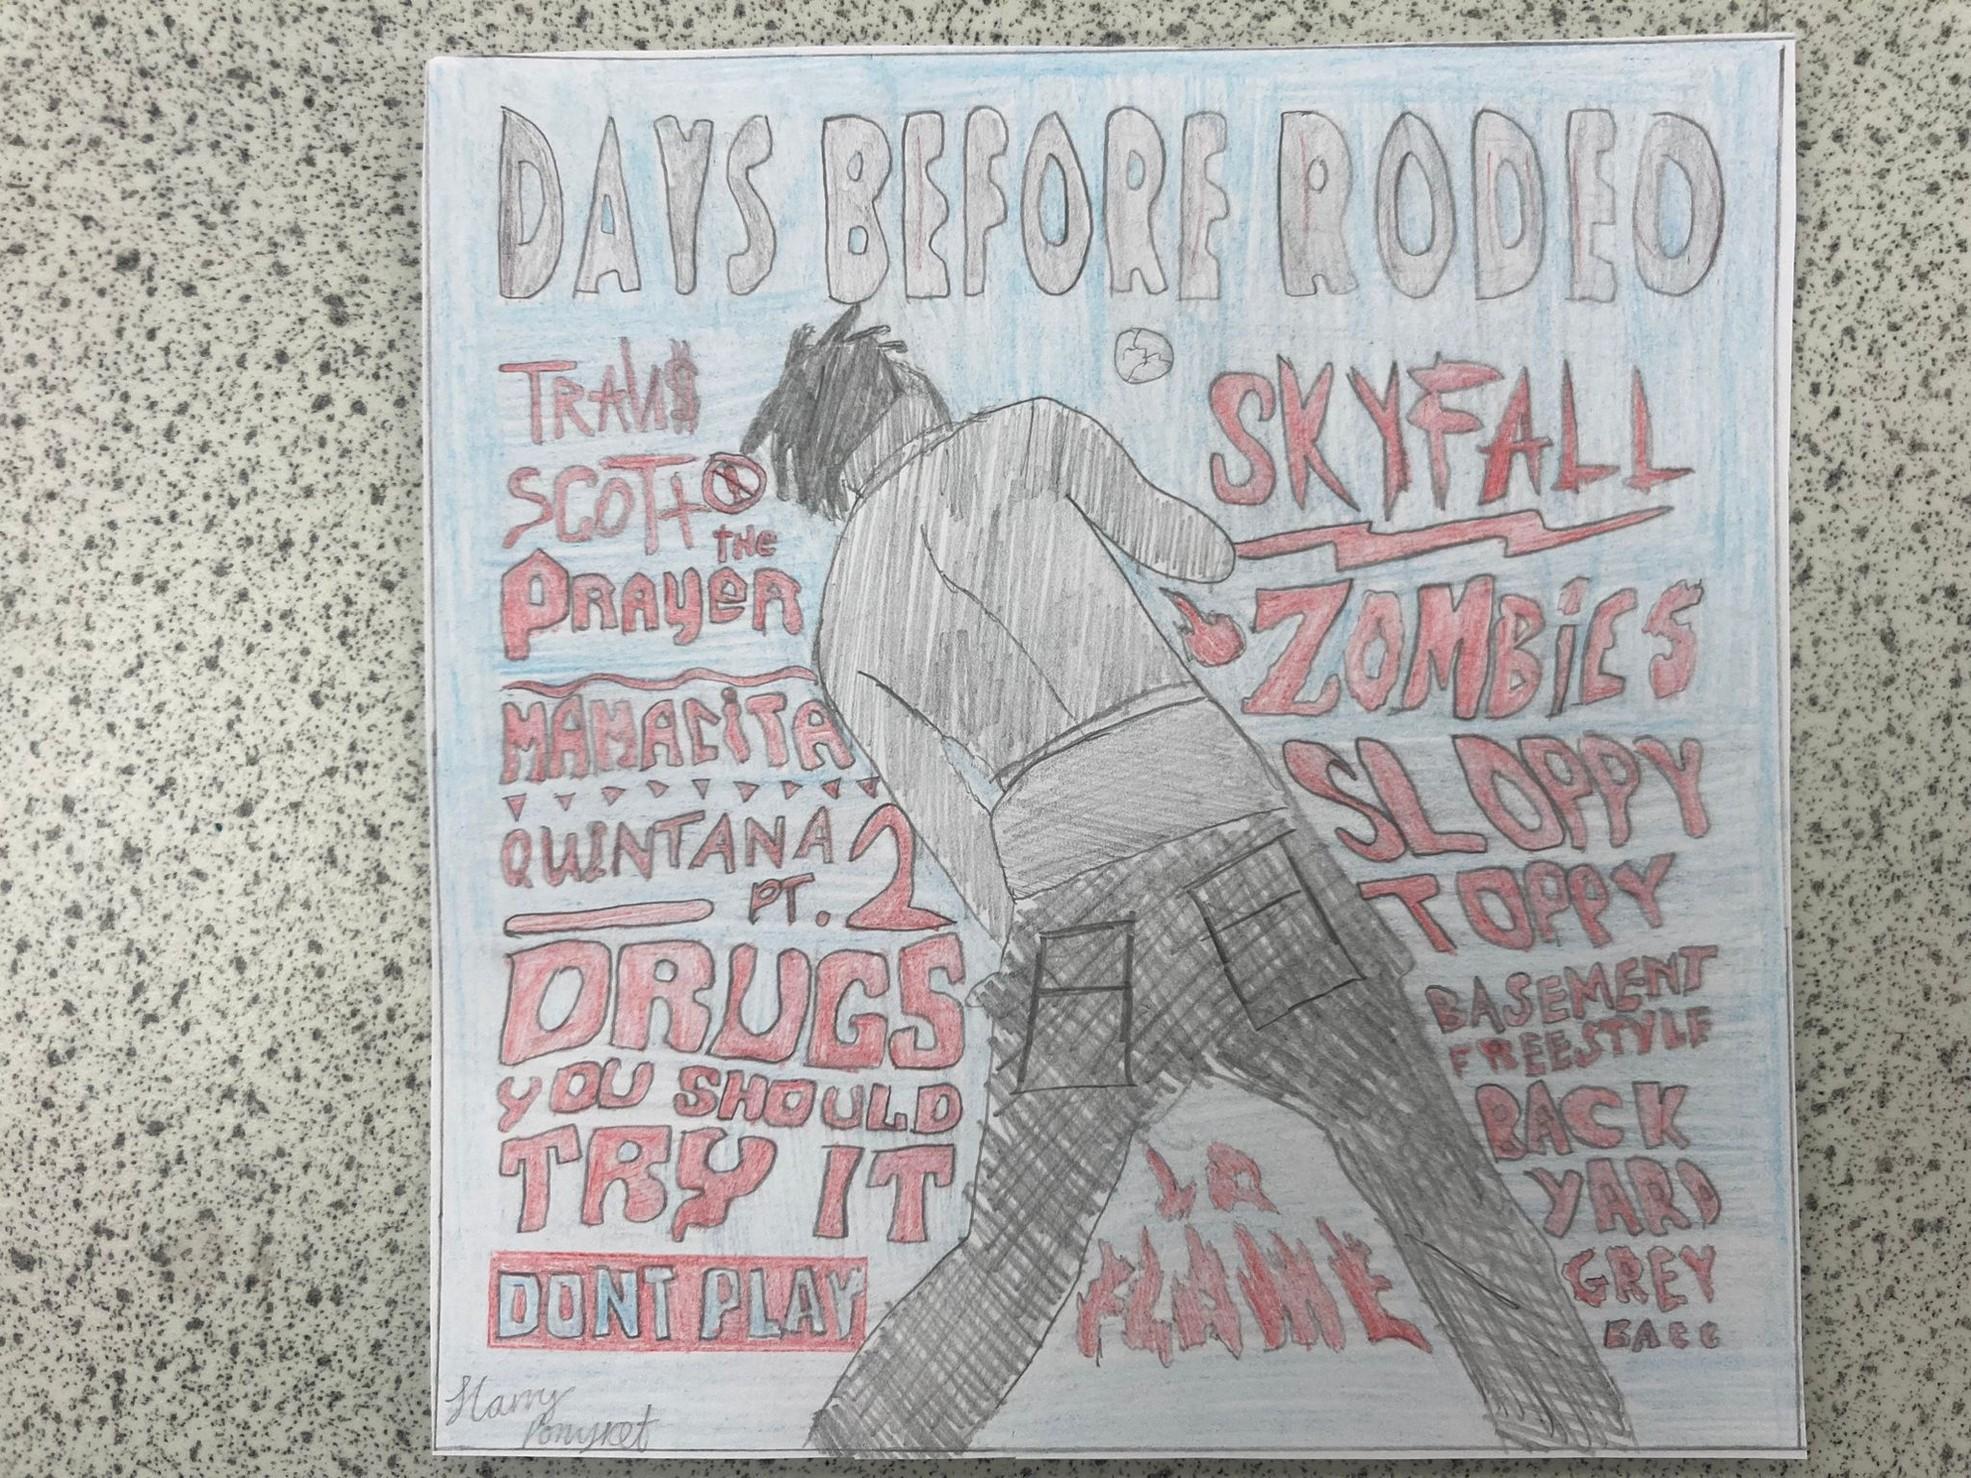 DAYS BEFORE RODEO
TRAVI$
SCOTT
THE
PRAYER
MAMACITA
QUINTANA
PT. 2
DRUGS
YOU SHOULD
TRY IT
DONT PLAY
SKYFALL
ZOMBiES
SLOPPY
TOPPY
BASEMENT
FREESTYLE
BACK
YARD
GREY
LA
FLAME
Harry